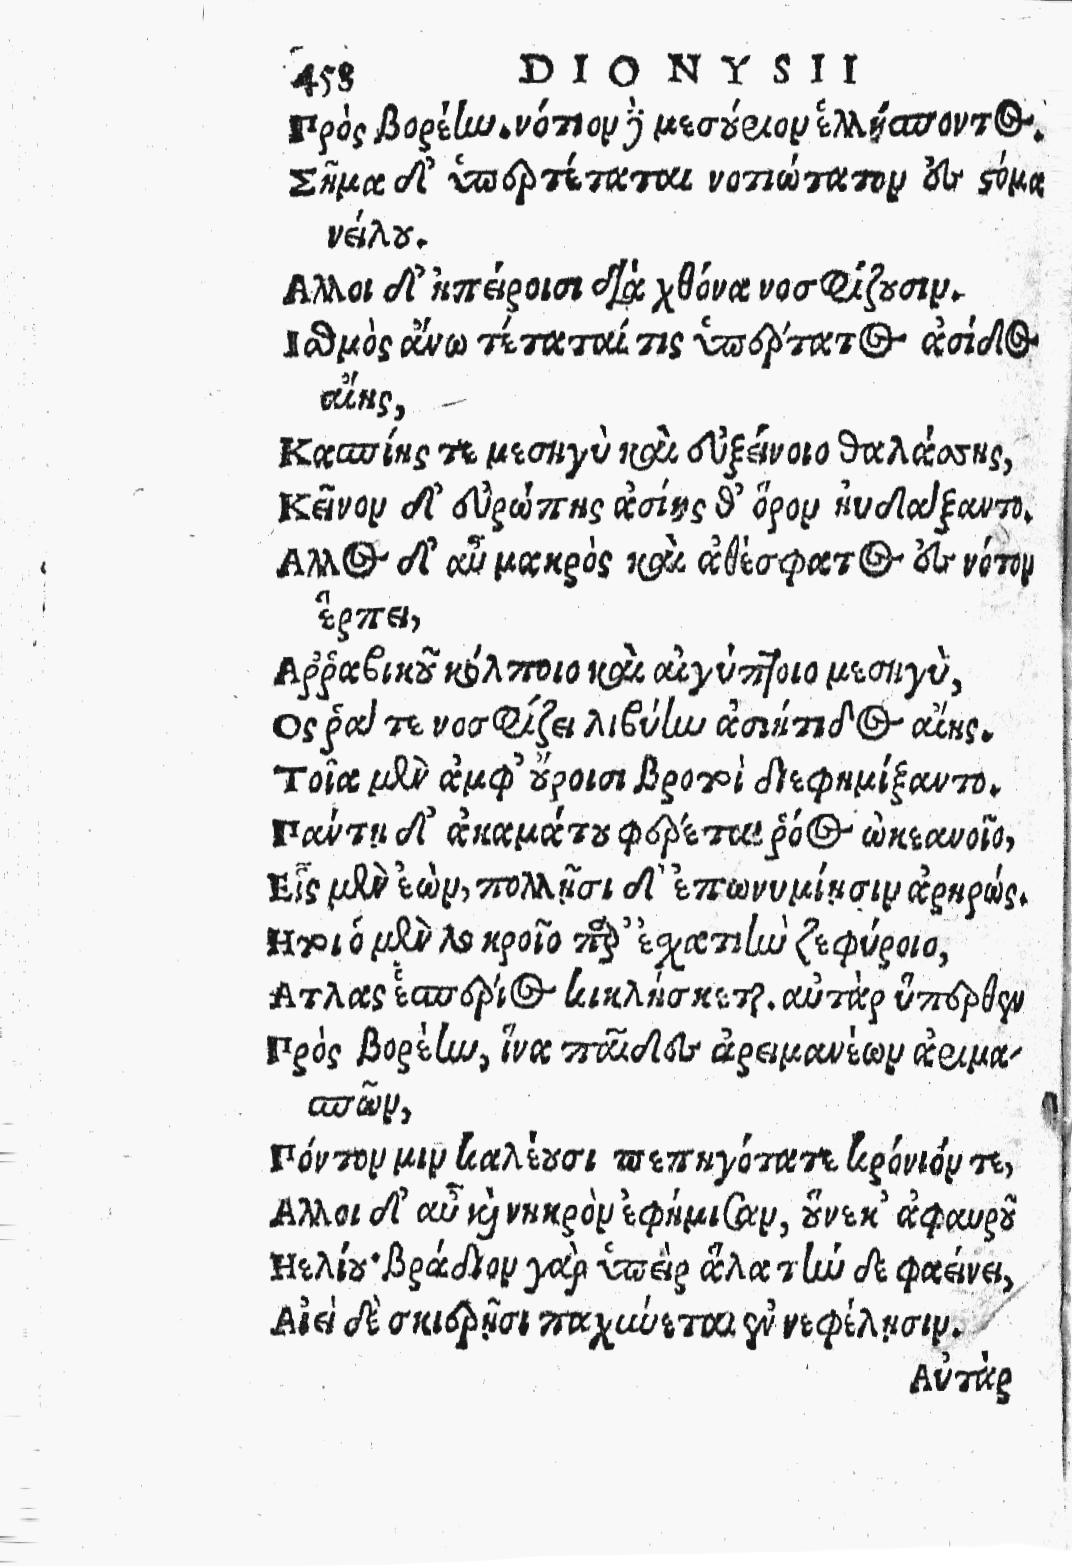 458 DIONYSII
Πρὸς βορέην. νότιον δὲ μεσούριον ἑλλήσποντος.
Σῆμα δ' ὑπερτέταται νοτιώτατον εἰς στόμα
νείλου.
Αλλοι δ' ἠπείροισι διὰ χθόνα νοσφίζουσιν.
Ισθμὸς ἄνω τέταταί τις ὑπέρτατος ἀσίδος
αἴης,
Κασπίης τε μεσηγὺ καὶ εὐξείνοιο θαλάσσης,
Κεῖνον δ' εὐρώπης ἀσίης θ' ὅρον ηὐδάξαντο.
Αλλος δ' αὖ μακρὸς καὶ ἀθέσφατος εἰς νότον
ἕρπει,
Αῤῥαβικοῦ κόλποιο καὶ αἰγύπτοιο μεσηγὺ,
Ος ῥά τε νοσφίζει λιβύην ἀσιήτιδος αἴης.
Τοῖα μὲν ἀμφ' οὔροισι βροτοὶ διεφημίξαντο.
Παντη δ' ἀκαμάτου φέρεται ῥόος ὠκεανοῖο,
Εἷς μὲν ἐὼν, πολλῇσι δ' ἐπωνυμίῃσιν ἀρηρώς.
Ητοι ὁ μὲν λοκροῖο παρ' ἐσχατιὴν ζεφύροιο,
Ατλας ἑσπέριος κικλήσκεται. αὐτὰρ ὕπερθεν
Πρὸς βορέην, ἵνα παῖδες ἀρειμανέων ἀριμα-
σπῶν,
Πόντον μιν καλέουσι πεπηγότατε κρόνιόν τε,
Αλλοι δ' αὖ καὶ νηκρὸν ἐφήμισαν, οὕνεκ' ἀφαυροῦ
Ηελίου· βράδιον γὰρ ὑπεὶρ ἅλα τὴν δε φαείνει,
Αἰεὶ δὲ σκιερῇσι παχύνεται ἐν νεφέλῃσιν.
Αὐτὰρ